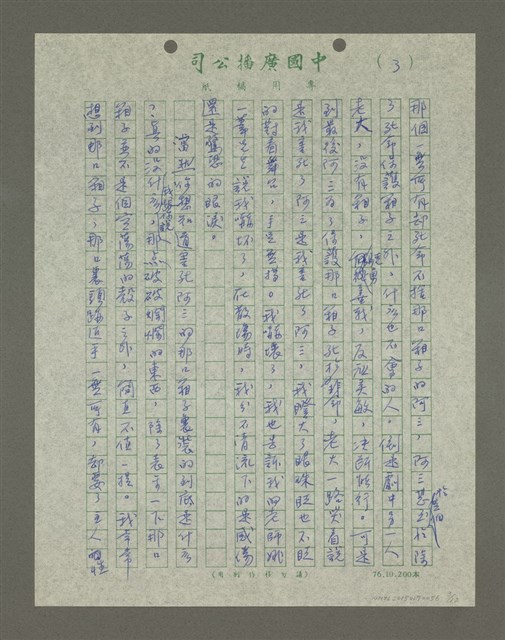 (3)
中國廣播公司
專用稿紙
那個一無所有卻死命不捨那口箱子的阿三，阿三甚至於除
了死命保護箱子之外，什麼也不會的人，倒是劇中另一人
老大，沒有箱子，反訕美敵，決所能行。可是
到最後阿三為了保護那口箱子死於非命，老大一路哭著說
是我害死了阿三是我害死了阿三，我瞪大了眼珠眨也不眨
的對着舞台，手足無措。我嚇壞了，我也告訴我的老師姚
一葦先生說我嚇壞了，在散場時，我分不清流下的是感傷
還是驚恐的眼淚。
當然你想知道害死阿三的那口箱子裏裝的到底是什麼
？真的沒什麼，那點破破爛爛的東西，除了表示一下那口
箱子並不是個空蕩蕩的殼子之外，簡直不值一提。我常常
想到那口箱子，那口裏頭幾近乎一無所有，卻要了主人
76.10.200本